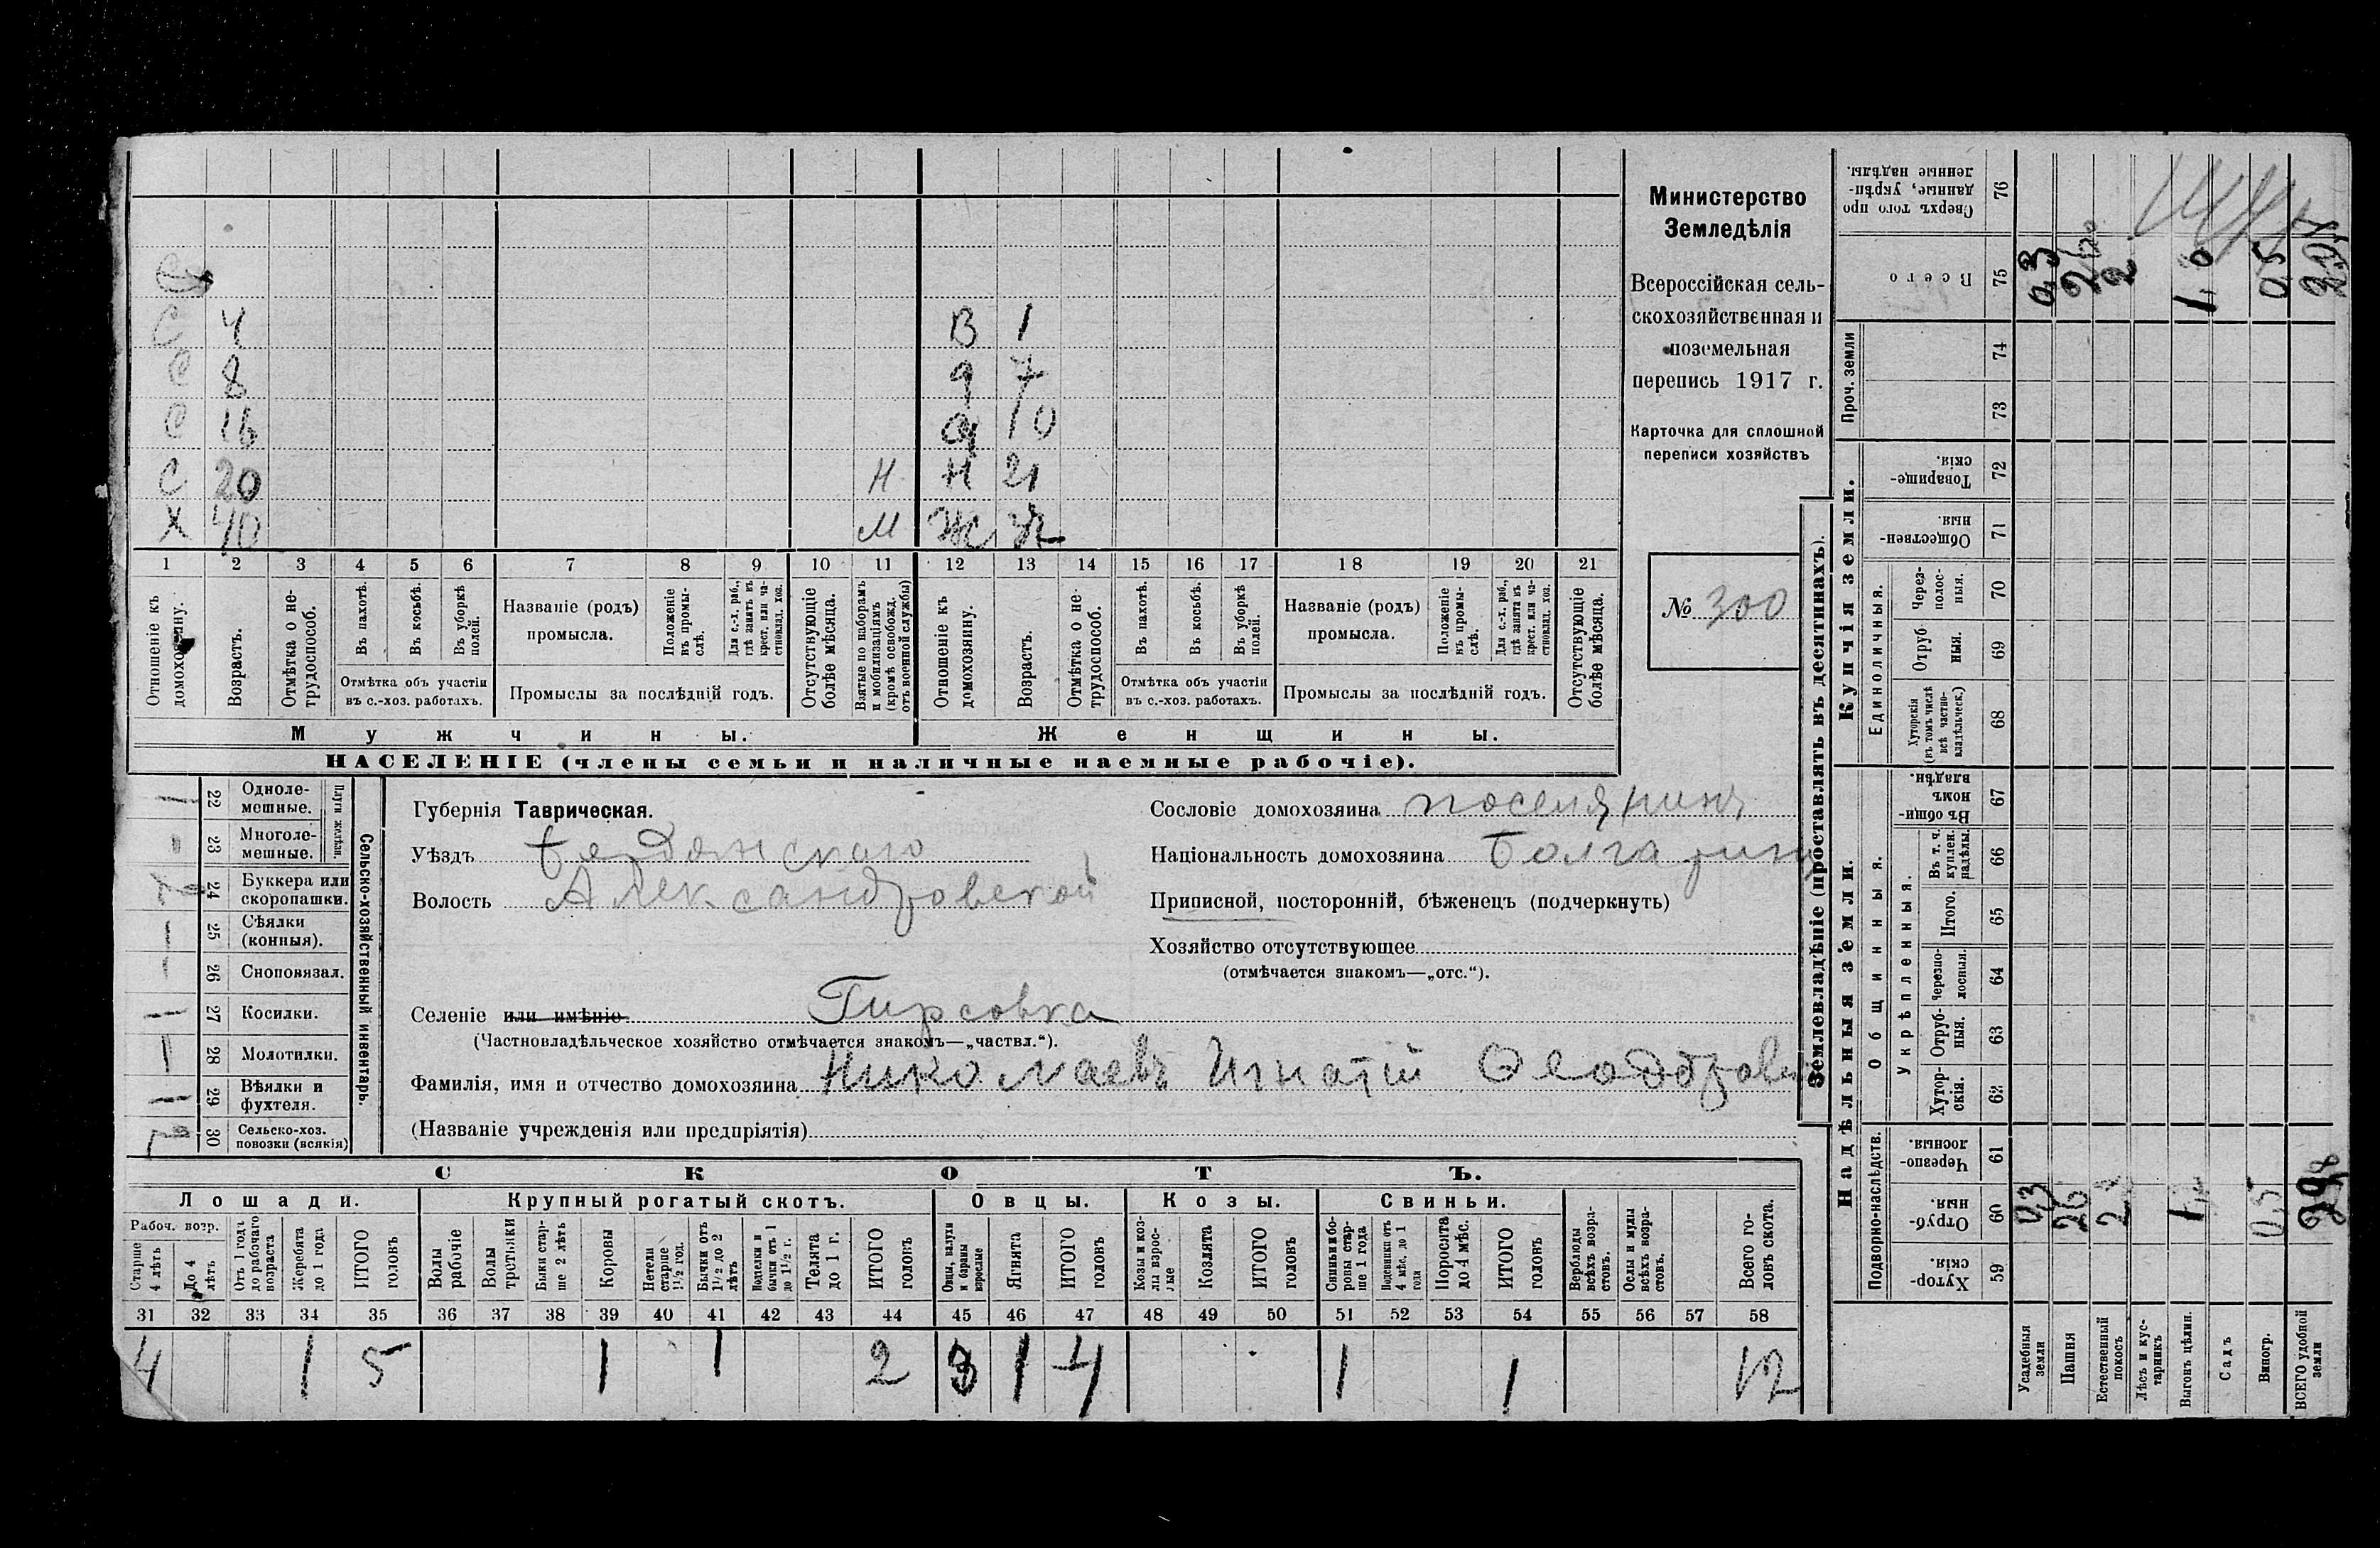 С 4 В 1
С 8 д 7
С 16 д 10
С 20 Н Н 21
Х 40 М Ж
1 2 3 4 5 6 7 8 9 10 11 12 13 14 15 16 17 18 19 20 21
Отношеніе къ домохозяину.
Возрастъ.
Отмѣтка о нетрудоспособ.
Въ пахотѣ.
Въ косьбѣ.
Въ уборкѣ полей.
Отмѣтка объ участіи
въ с.-хоз. работахъ.
Названіе (родъ)
промысла.
Положеніе въ промыслѣ.
Для с.-х. раб., гдѣ занятъ въ крест. или частновлад. хоз.
Промыслы за послѣдній годъ.
Отсутствующіе болѣе мѣсяца.
Взятые по наборамъ и мобилизаціямъ (кромѣ освобожд. отъ военной службы)
Отношеніе къ домохозяину.
Возрастъ.
Отмѣтка о нетрудоспособ.
Въ пахотѣ.
Въ косьбѣ.
Въ уборкѣ полей.
Отмѣтка объ участіи
въ с.-хоз. работахъ.
Названіе (родъ)
промысла.
Положеніе въ промыслѣ.
Для с.-х. раб., гдѣ занята въ крест. или частновлад. хоз.
Промыслы за послѣдній годъ.
Отсутствующіе болѣе мѣсяца.
Мужчины. Женщины.
НАСЕЛЕНІЕ (члены семьи и наличные наемные рабочіе).
Министерство
Земледѣлія
Всероссійская сель-
скохозяйственная и
поземельная
перепись 1917 г.
Карточка для сплошной
переписи хозяйствъ
№ 300
22 Одноле-
мешные.
23 Многоле-
мешные.
Плуги желѣзн.
24 Буккера или
скоропашки.
25 Сѣялки
(конныя).
26 Сноповязал.
27 Косилки.
28 Молотилки.
29 Вѣялки и
фухтеля.
30 Сельско-хоз.
повозки (всякія)
Сельско-хозяйственный инвентарь.
Губернія Таврическая.
Уѣздъ Бердянскаго
Волость Александровской
Сословіе домохозяина поселянинъ
Національность домохозяина Болгаринъ
Приписной, посторонній, бѣженецъ (подчеркнуть)
Хозяйство отсутствующее
(отмѣчается знакомъ—„отс.“).
Селеніе или имѣніе Гирсовка
(Частновладѣльческое хозяйство отмѣчается знакомъ—„частвл.“).
Фамилія, имя и отчество домохозяина Николаевъ Игнатій Ѳеодоровичъ
(Названіе учрежденія или предпріятія)
СКОТЪ.
Лошади. Крупный рогатый скотъ. Овцы. Козы. Свиньи.
Рабоч. возр.
Старше 4 лѣтъ
До 4 лѣтъ
Отъ 1 года до рабочаго возраста
Жеребята до 1 года
ИТОГО головъ
Волы рабочіе
Волы третьяки
Быки старше 2 лѣтъ
Коровы
Нетели старше 1½ год.
Бычки отъ 1½ до 2 лѣтъ
Подтелки и бычки отъ 1 до 1½ г.
Телята до 1 г.
ИТОГО головъ
Овцы, валухи и бараны взрослые
Ягнята
ИТОГО головъ
Козы и козлы взрослые
Козлята
ИТОГО головъ
Свиньи и боровы старше 1 года
Подсвинки отъ 4 мѣс. до 1 года
Поросята до 4 мѣс.
ИТОГО головъ
Верблюды всѣхъ возрастовъ.
Ослы и мулы всѣхъ возрастовъ.
Всего головъ скота.
31 32 33 34 35 36 37 38 39 40 41 42 43 44 45 46 47 48 49 50 51 52 53 54 55 56 57 58
4 1 5 1 1 2 3 1 4 1 1 12
Землевладѣніе (проставлять въ десятинахъ).
Сверхъ того проданные, укрѣпленные надѣлы. 76
Всего 75 0,3 2 1,0 0,5
Проч. земли
74
73
Купчія земли.
Товарищескія. 72
Общественныя. 71
Единоличныя.
Черезполосныя. 70
Отрубныя. 69
Хуторскія (въ томъ числѣ всѣ частновладѣльческ.) 68
Надѣльныя земли.
Общинныя.
Въ общинномъ владѣн. 67
Укрѣпленныя.
Въ т. ч. куплен. надѣлы. 66
Итого. 65
Черезполосныя. 64
Отрубныя. 63
Хуторскія. 62
Подворно-наслѣдств.
Черезполосныя. 61
Отрубныя. 60 0,3 26 2 1 0,5
Хуторскія. 59
Усадебныя земли
Пашня
Естественный покосъ
Лѣсъ и кустарникъ
Выгонъ цѣлин.
Садъ
Виногр.
ВСЕГО удобной земли